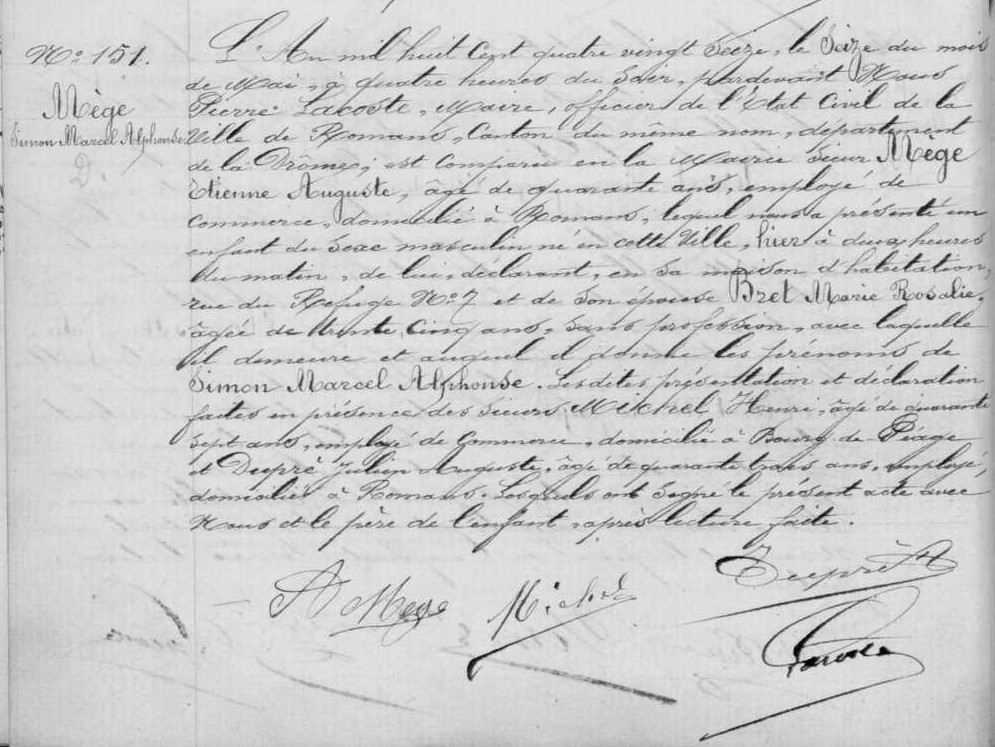 N° 151.
Mège
Simon Marcel Alphonse
D.
L'An mil huit Cent quatre vingt Seize, le Seize du mois
de Mai, à quatre heures du Soir, pardevant Nous
Pierre Lacoste, Maire, officier de l'Etat Civil de la
Ville de Romans, Canton du même nom, département
de la Drôme, est Comparu en la Mairie Sieur Mège
Etienne Auguste, âgé de quarante ans, employé de
Commerce, domicilié à Romans, lequel nous a présenté un
enfant du Sexe masculin né en cette Ville, hier à deux heures
du matin, de lui, déclarant, en sa maison d'habitation,
rue du Refuge N° 7 et de Son épouse Bret Marie Rosalie,
âgée de trente cinq ans, sans profession, avec laquelle
il demeure et auquel il donne les prénoms de
Simon Marcel Alphonse. Lesdites présentation et déclaration
faites en présence des sieurs Michel Henri, âgé de quarante
sept ans, employé de Commerce, domicilié à Bourg de Péage
et Dupré Julien Auguste, âgé de quarante trois ans, employé,
domicilié à Romans. Lesquels ont signé le présent acte avec
Nous et le père de l'enfant, après lecture faite.
Dupré A
A Mège Michel